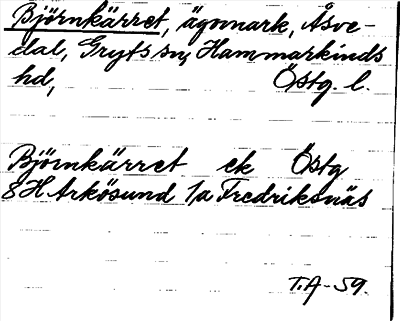 Björnkärret, ägomark, Åsve-
dal, Gryts sn, Hammarkinds
hd, Östg. l.
Björnkärret ek Östg
8H Arkösund 1a Fredriksnäs
T.A-59.